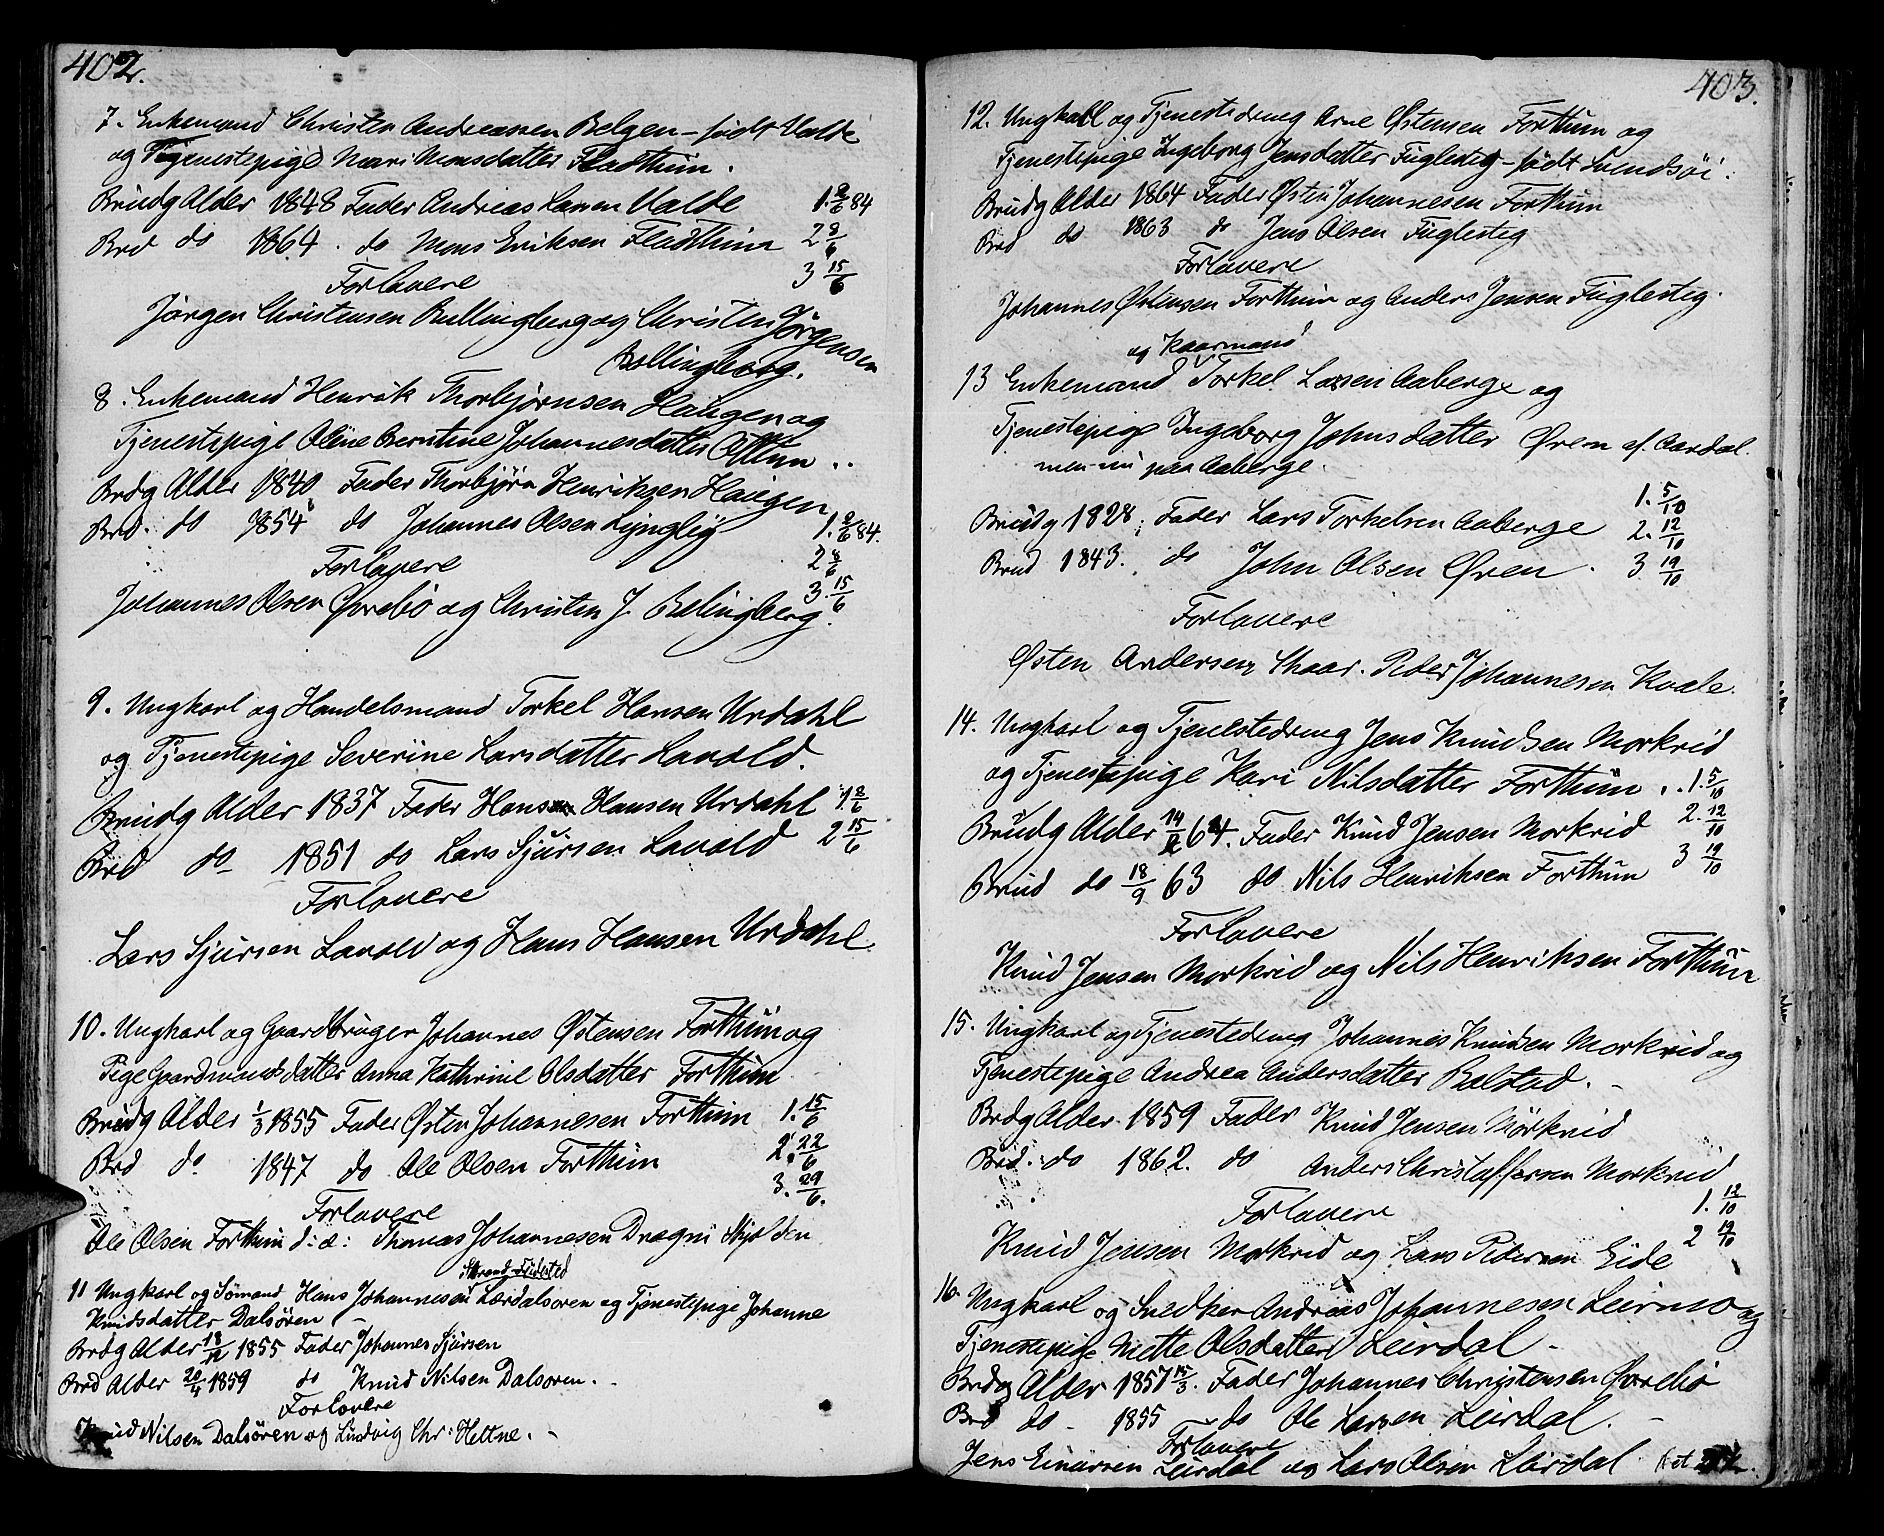 402.
7. Enkemand Christen Andreassen Belgen – født Valde
og Tjenestepige Mari Monsdatter Fladthum.
Brudg Alder 1848 Fader Andreas Larsen Valde 1. 2/6 84
Brd do 1864. do Mons Eriksen Fladthum 2 8/6
Forlovere 3 15/6
Jørgen Christensen Bullingberg og Christen Jørgensen
Bollingberg.
8. Enkemand Henrik Thorbjørnsen Haugen og
Tjenestepige Oline Berntine Johannesdatter
Brdg Alder 1840 Fader Thorbjørn Henriksen Haugen
Brd. do 1854 do Johannes Olsen Lynglig 1. 2/6 84.
Forlovere 2 8/6
Johannes Olsen Øvrebø og Christen J. Belingberg. 3. 15/6
9. Ungkarl og Handelsmand Torkel Hansen Urdahl
og Tjenestepige Severine Larsdatter Lavold.
Brudg Alder 1837 Fader Hans Hansen Urdahl 1. 8/6
Brd do 1851 do Lars Sjursen Lavold 2 15/6
Forlovere
Lars Sjursen Lavold og Hans Hansen Urdahl.
10. Ungkarl og Gaardbruger Johannes Østensen Forthun og
Pige Gaardmandsdatter Anna Kathrine Olsdatter Forthun
Brudg Alder 1/3 1855 Fader Østen Johannesen Forthun 1. 15/6
Brd do 1847 do Ole Olsen Forthun 2. 22/6
Forlovere 3. 29/6.
Ole Olsen Forthun d: æ: Thomas Johannesen Drægni Skjolden
Strand-Fridsted
11 Ungkarl og Sømand Hans Johannesen Lærdalsøren og Tjenestepige Johanne
Knudsdatter Dalsøren –
Brdg Alder 18/12 1855 Fader Johannes Sjursen
Brd Alder 20/4 1859 do Knud Nilsen Dalsøren. -
Forlovere
Knud Nilsen Dalsøren og Ludvig Chr: Hettne. -
403.
12. Ungkarl og Tjenestedreng Arne Østensen Forthun og
Tjenestepige Ingeborg Jensdatter Fuglesteg – født Svendsøi.
Brudg Alder 1864 Fader Østen Johannesen Forthun
Brd do 1863 do Jens Olsen Fuglesteg
Forlovere
Johannes Østensen Forthun og Anders Jensen Fuglesteg.
og Kaarmand
13 Enkemand Torkel Larsen Aaberge og
Tjenestepige Ingeborg Johnsdatter Øren af Aardal
men nu paa Aaberge.
Brudg 1828. Fader Lars Torkelsen Aaberge 1. 5/10
2. 12/10
Brud 1843. do John Olsen Øren. 3 19/10
Forlovere
Østen Andersen Skaar. Peder Johannesen Kvale.
14. Ungkarl og Tjenestedreng Jens Knudsen Morkrid
og Tjenestepige Kari Nilsdatter Forthun. 1. 5/10
Brudg Alder 14/12 64. Fader Knud Jensen Morkrid 2. 12/10
Brud do 18/9 63 do Nils Henriksen Forthun 3 19/10
Forlovere
Knud Jensen Morkrid og Nils Henriksen Forthun
15. Ungkarl og Tjenestedreng Johannes Knudsen Morkrid og
Tjenestepige Andrea Andersdatter Bolstad. -
Brdg Alder 1859 Fader Knud Jensen Mørkrid
Brd. do 1862. do Anders Christaffersen Morkrid
Forlovere 1. 12/10
Knud Jensen Morkrid og Lars Pedersen Eide 2 19/10
16. Ungkarl og Snedker Andreas Johannesen Leirmo og
Tjenestepige Mette Olsdatter Leirdal -
Brdg Alder 1857 15/3. Fader Johannes Christensen Øvrebø
Brd do - 1855 do Ole Larsen Leirdal. -
Forlovere
Jens Einarsen Leirdal og Lars Olsen Leirdal.